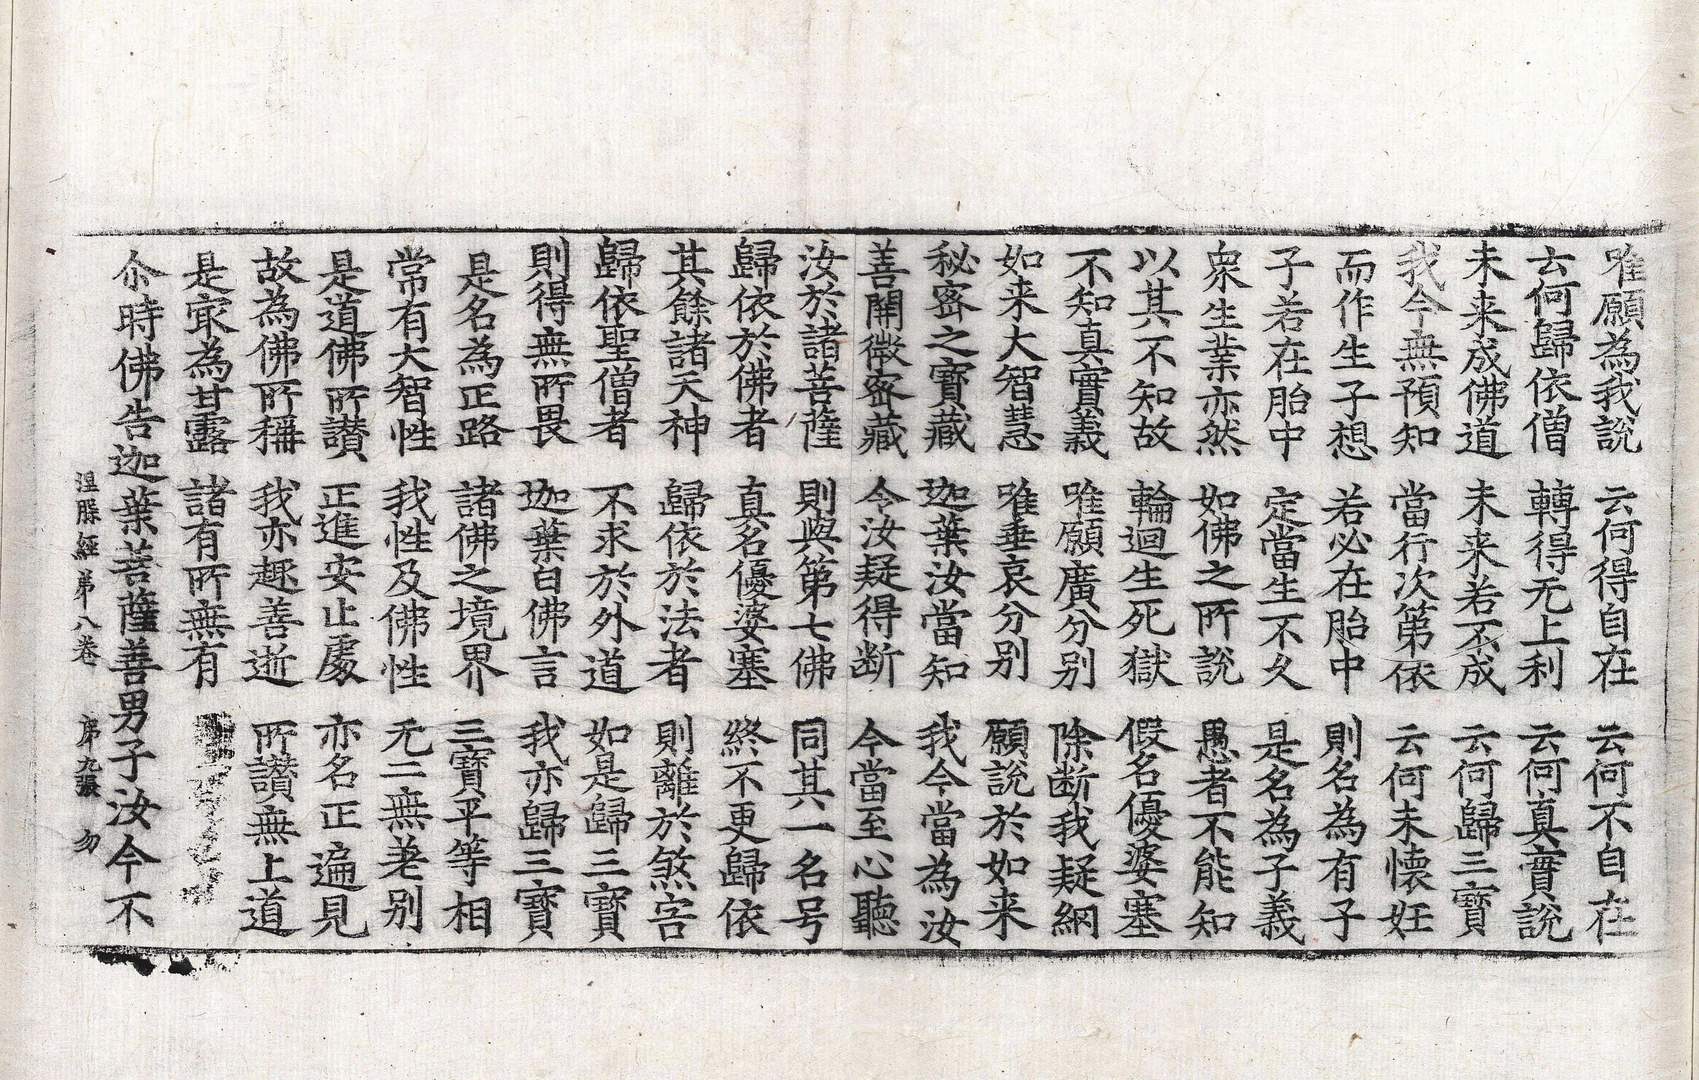 唯願為我說　云何得自在　云何不自在
云何歸依僧　轉得无上利　云何真實說
未来成佛道　未来若不成　云何歸三寶
我今無預知　當行次第依　云何未懷妊
而作生子想　若必在胎中　則名為有子
子若在胎中　定當生不久　是名為子義
衆生業亦然　如佛之所說　愚者不能知
以其不知故　輪迴生死獄　假名優婆塞
不知真實義　唯願廣分別　除断我疑網
如来大智慧　唯垂哀分别　願說於如来
秘宻之寶藏　迦葉汝當知　我今當為汝
善開微宻藏　令汝疑得断　今當至心聽
汝於諸菩薩　則與第七佛　同其一名号
歸依於佛者　真名優婆塞　終不更歸依
其餘諸天神　歸依於法者　則離於煞害
歸依聖僧者　不求於外道　如是歸三寶
則得無所畏　迦葉白佛言　我亦歸三寶
是名為正路　諸佛之境界　三寶平等相
常有大智性　我性及佛性　无二無差别
是道佛所讃　正進安止處　亦名正遍見
故為佛所稱　我亦趣善逝　所讃無上道
是㝡為甘露　諸有所無有
尒時佛告迦葉菩薩善男子汝今不
涅槃經第八卷　第九張　勿